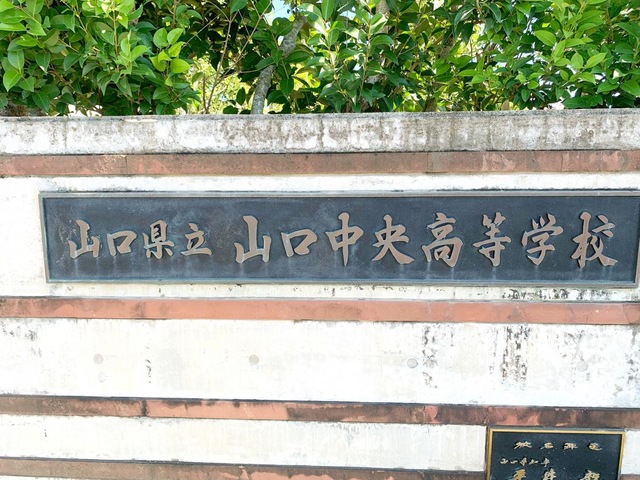 山口県立 山口中央高等学校